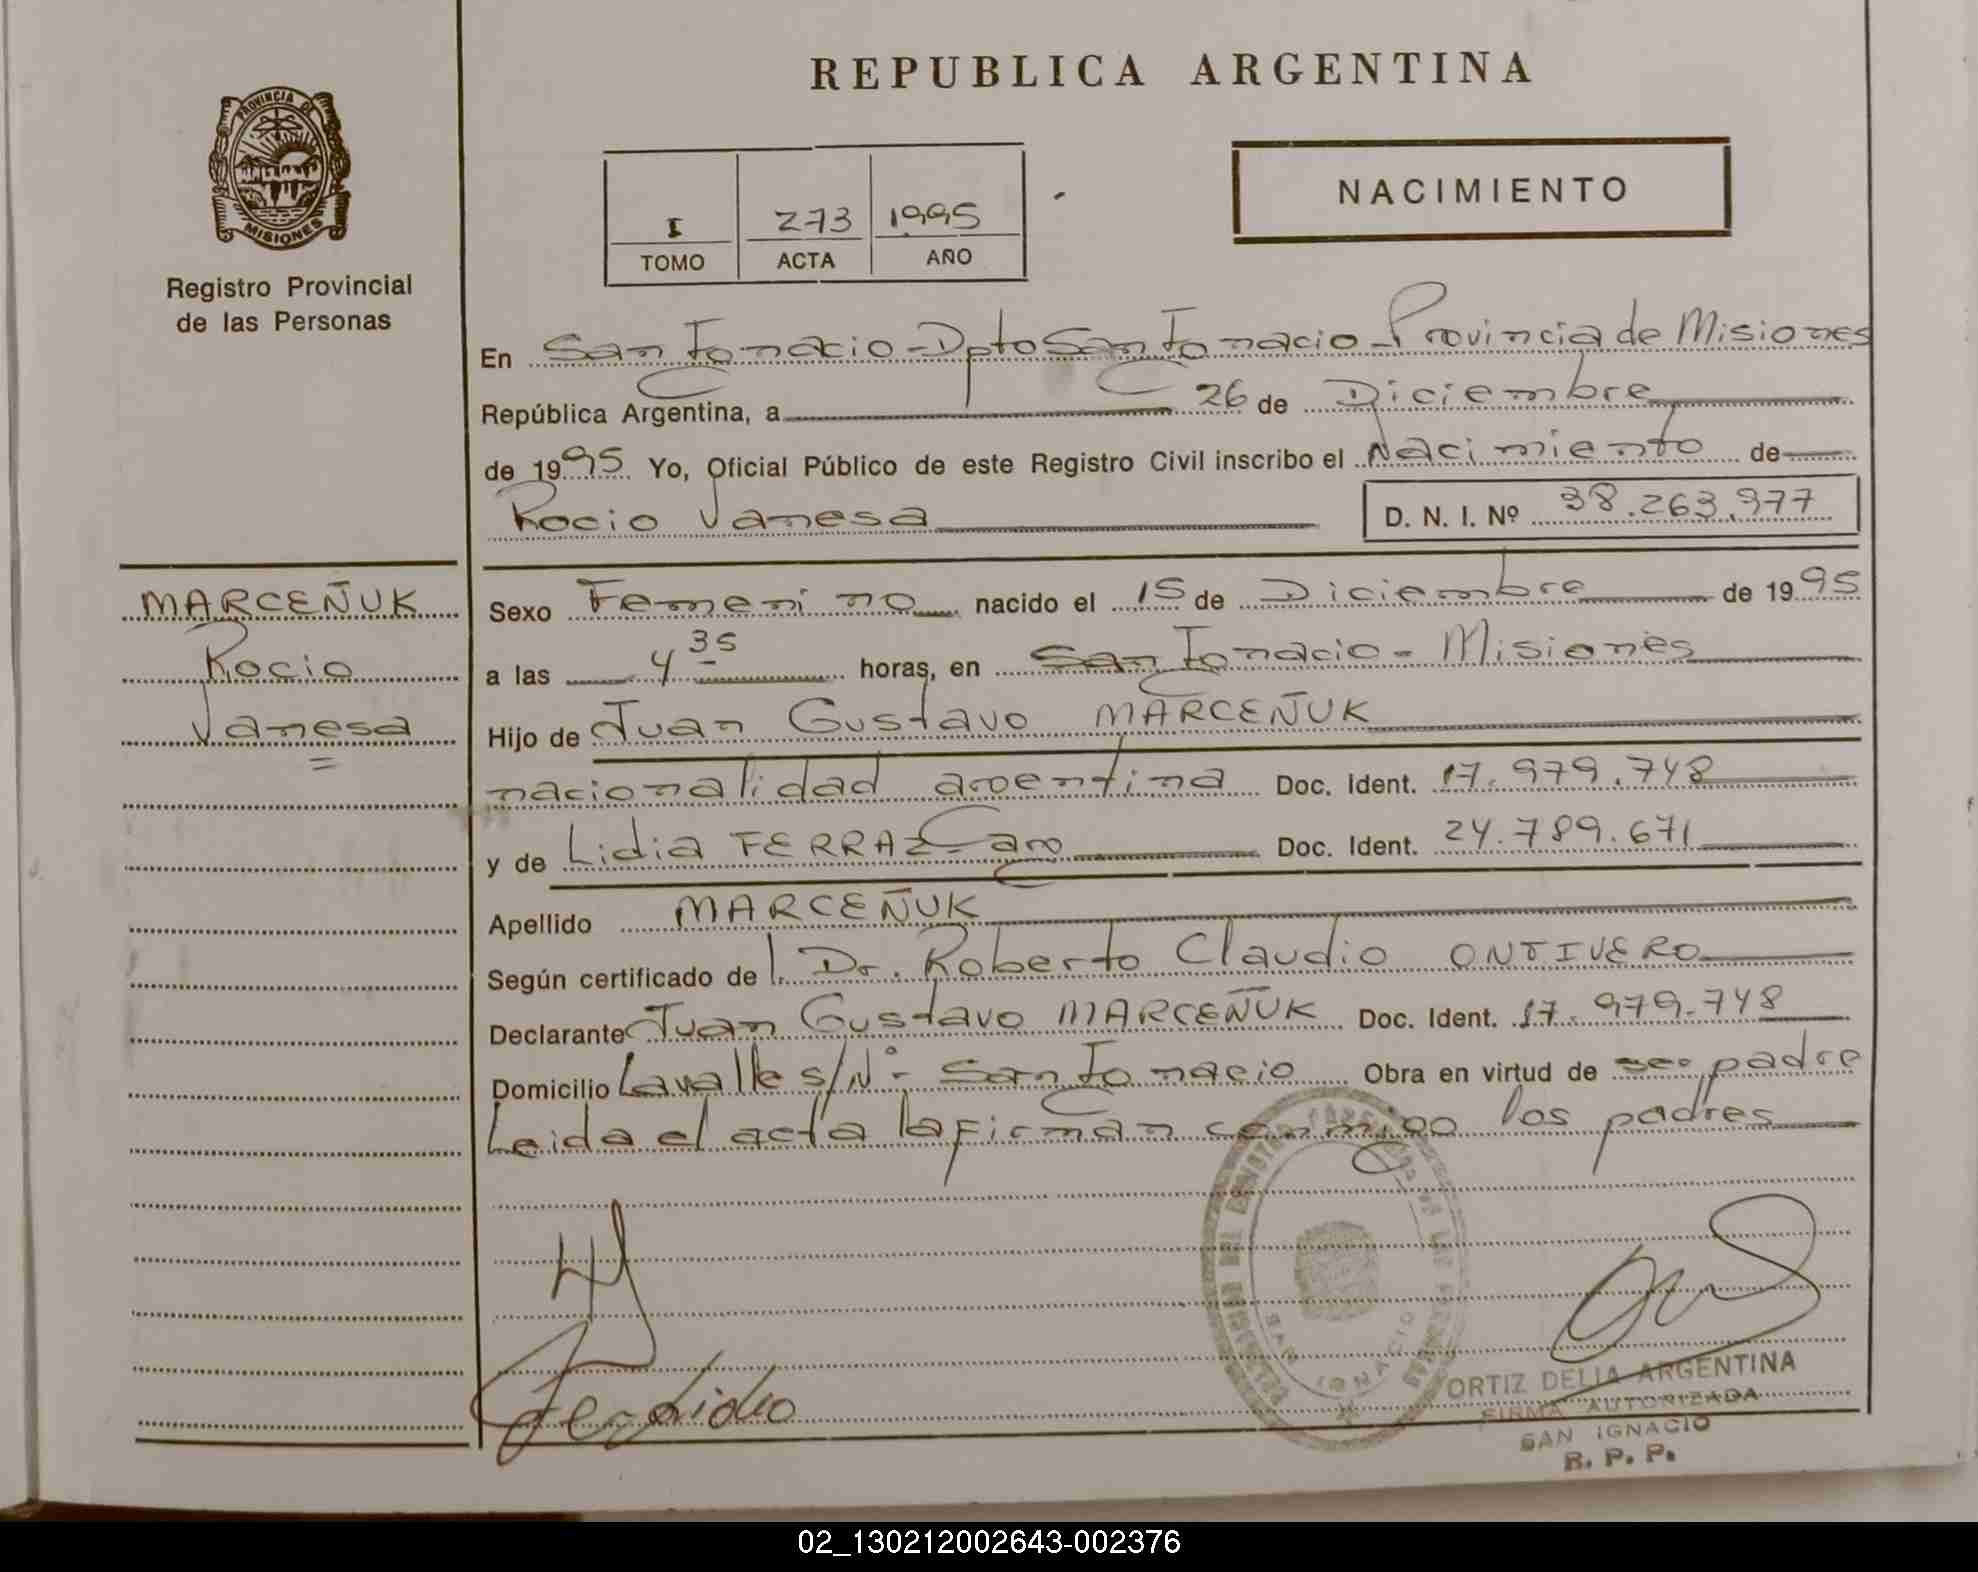 REPUBLICA ARGENTINA
PROVINCIA DE
MISIONES
Registro Provincial
de las Personas
I 273 1995
TOMO ACTA AÑO
NACIMIENTO
En San Ignacio - Dpto San Ignacio - Provincia de Misiones
República Argentina, a 26 de Diciembre
de 1995 Yo, Oficial Público de este Registro Civil inscribo el Nacimiento de
Rocio Vanesa
D. N. I. Nº 38.263.977
MARCEÑUK
Rocio
Vanesa
Sexo Femenino nacido el 15 de Diciembre de 1995
a las 4 35 horas, en San Ignacio - Misiones
Hijo de Juan Gustavo MARCEÑUK
nacionalidad argentina Doc. Ident. 17.979.748
y de Lidia FERRAZ - arg Doc. Ident. 24.789.671
Apellido MARCEÑUK
Según certificado de Dr. Roberto Claudio ONTIVERO
Declarante Juan Gustavo MARCEÑUK Doc. Ident. 17.979.748
Domicilio Lavalle s/Nº - San Ignacio Obra en virtud de ser padre
Leida el acta la firman conmigo los padres
SAN IGNACIO
ORTIZ DELIA ARGENTINA
FIRMA AUTORIZADA
SAN IGNACIO
R. P. P.
02_130212002643-002376